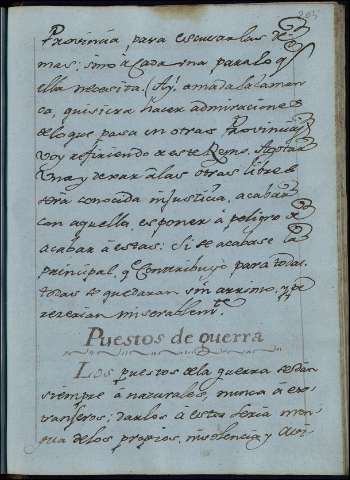 205
Provincia, para escusar las de
mas; sino à Cada una para lo q
ella necesita. (Ay! amada Salaman
ca, quisiera hacer admiraciones
de lo que pasa en otras Provincias
voy refiriendo de este Reyno. Agotar
una y dexar à las otras libres
será conocida injusticia, acabar
con aquella, es poner à peligro de
acabar à estas: Si se acabase la
principal, qe Contribuyò para todas,
todas se quedaran sin arrimo, y pe
rezerian miserablemte
Puestos de guerra
Los puestos de la guerra se dàn
siempre à naturales, nunca à ex
trangeros; darlos à estos seria men
gua de los propios, insolencia, y avi